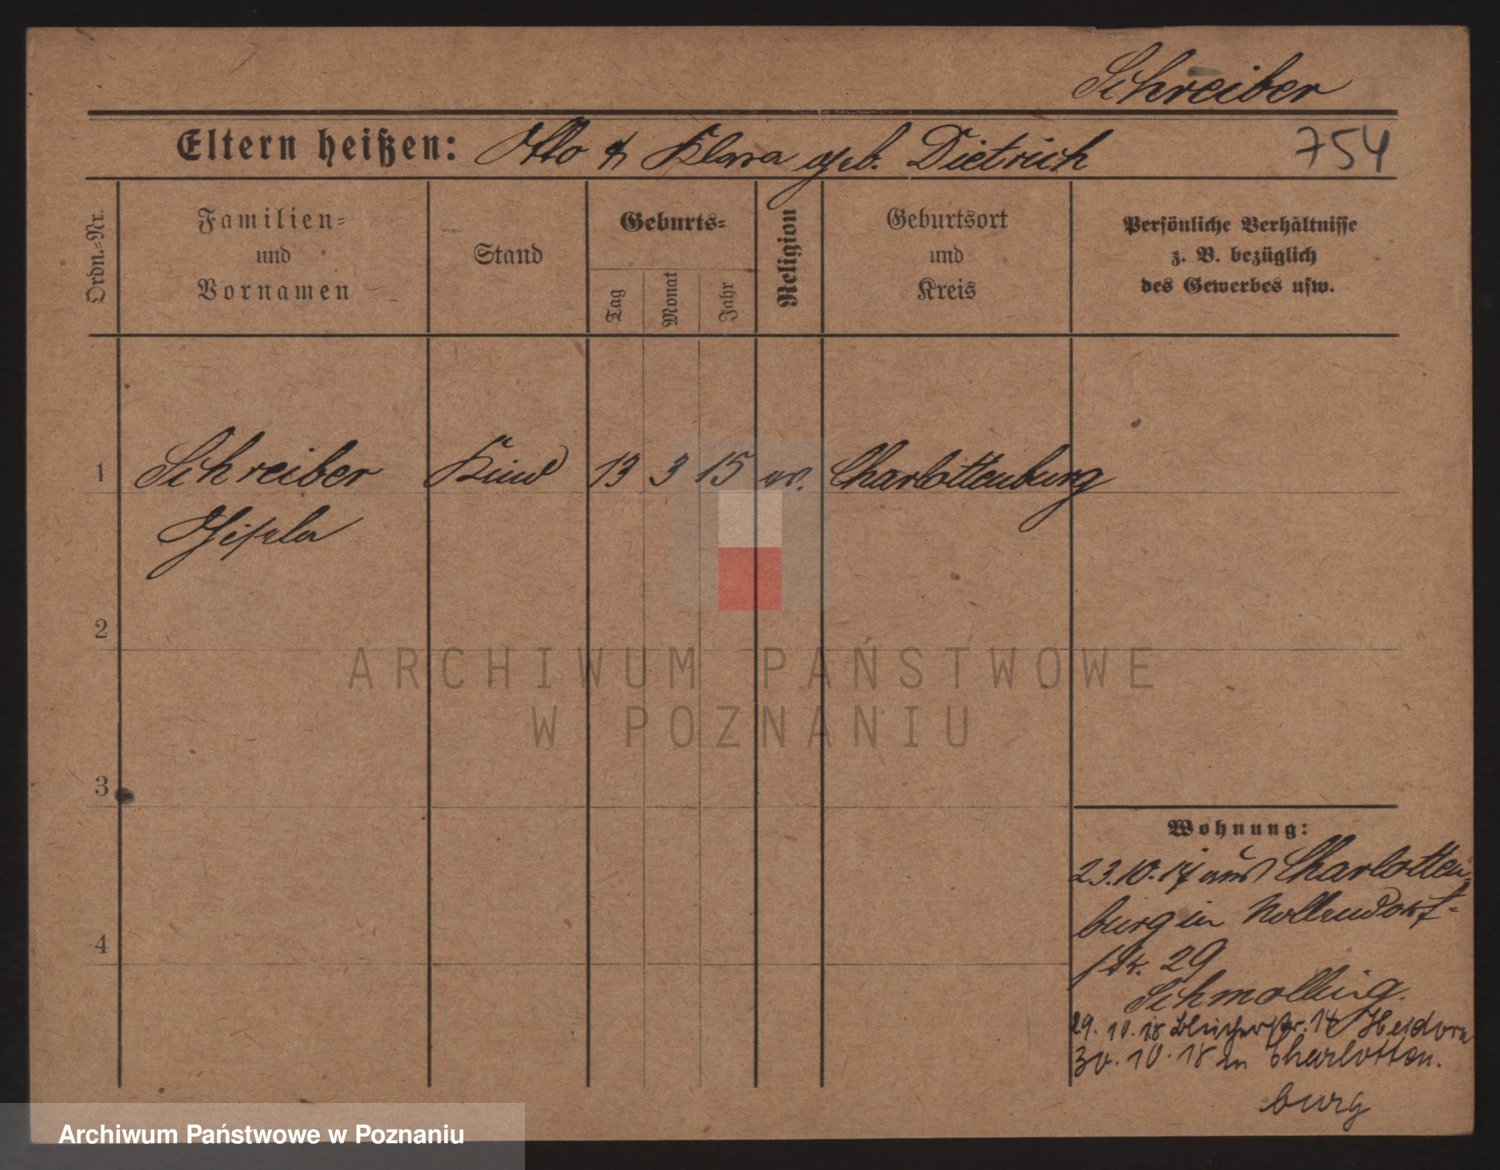 Schreiber
Eltern heißen: Otto & Klara geb. Dietrich
754
Ordn.=Nr.
Familien=
und
Vornamen
Stand
Geburts=
Tag
Monat
Jahr
Religion
Geburtsort
und
Kreis
Persönliche Verhältnisse
z. B. bezüglich
des Gewerbes usw.
1 Schreiber Kind 13 3 15 ev. Charlottenburg
Gisela
2
3
4
Wohnung:
23.10.17 aus Charlotten=
burg in Nollendorf-
str. 29
Schmolling.
29.10.18 Blücherstr. 14 Heydorn
30.10.18 in Charlotten.
burg
ARCHIWUM PAŃSTWOWE
W POZNANIU
Archiwum Państwowe w Poznaniu